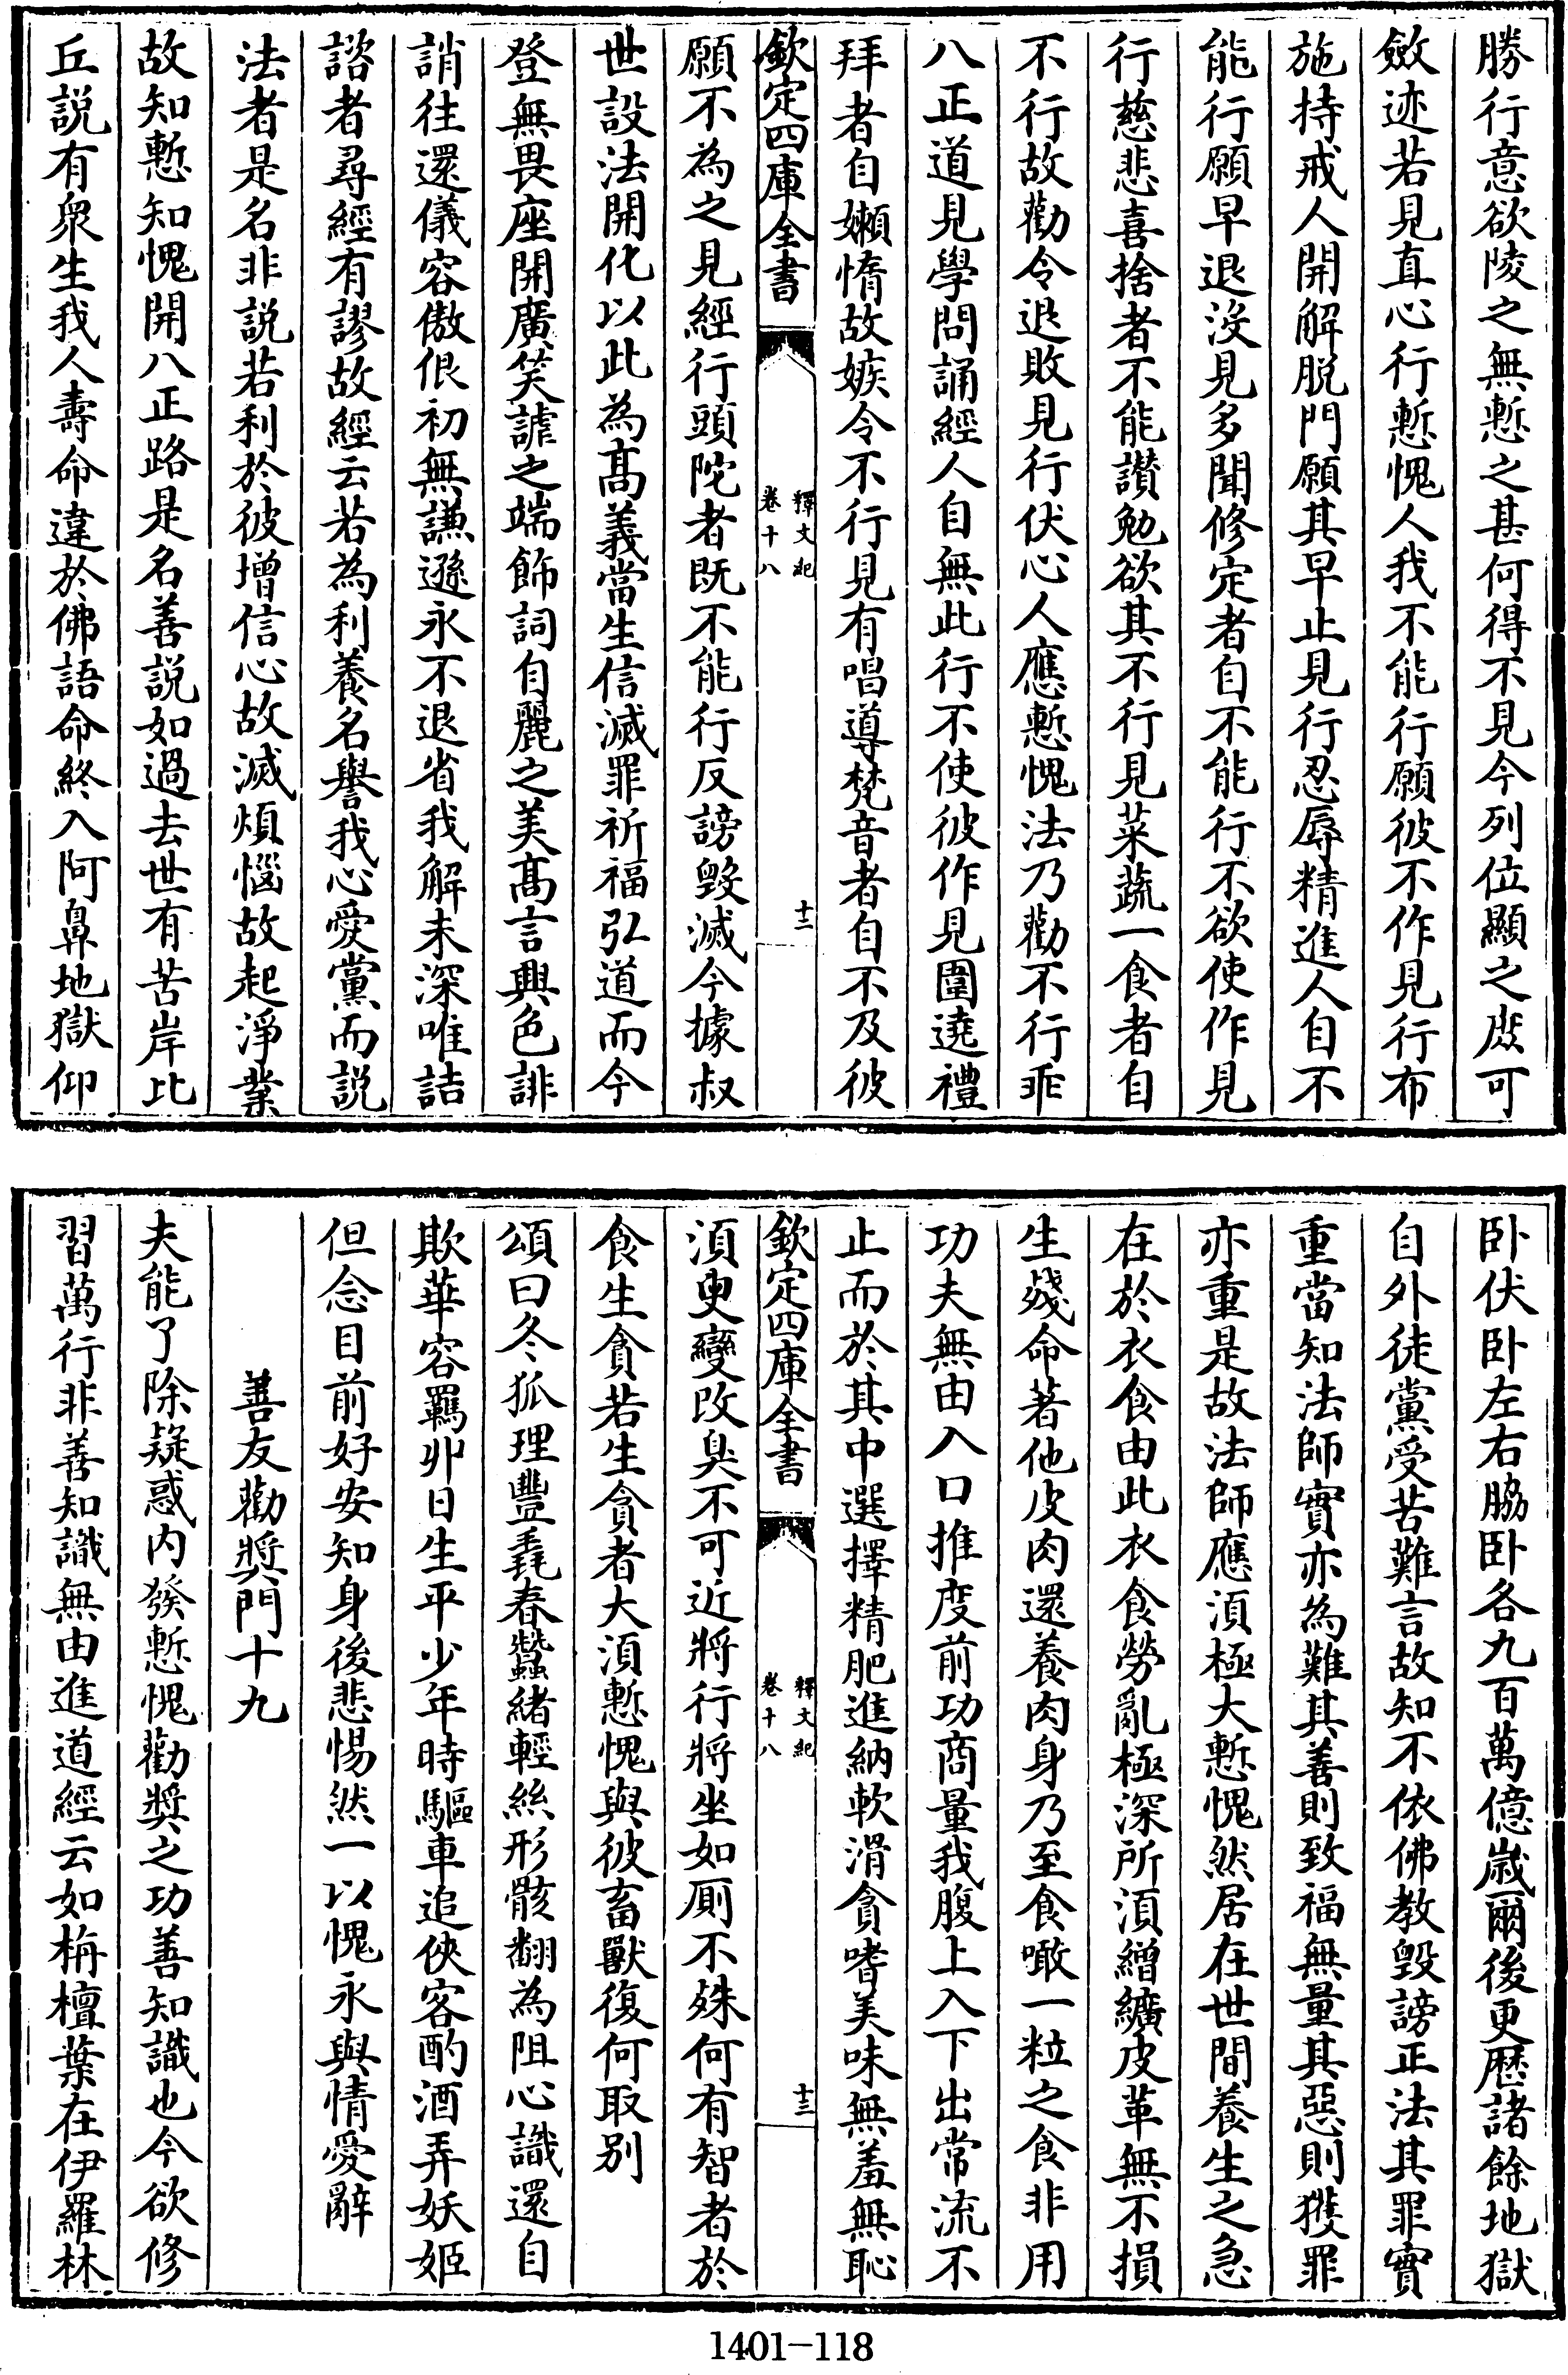 勝行意欲陵之無慙之甚何得不見今列位顯之庶可
斂迹若見直心行慙愧人我不能行願彼不作見行布
施持戒人開解脱門願其早止見行忍辱精進人自不
能行願早退沒見多聞修定者自不能行不欲使作見
行慈悲喜捨者不能讃勉欲其不行見菜蔬一食者自
不行故勸令退敗見行伏心人應慙愧法乃勸不行乖
八正道見學問誦經人自無此行不使彼作見圍遶禮
拜者自嬾惰故嫉令不行見有唱導梵音者自不及彼
欽定四庫全書
釋文紀
卷十八
十二
願不為之見經行頭陀者既不能行反謗毀滅今據叔
世設法開化以此為髙義當生信滅罪祈福弘道而今
登無畏座開廣笑謔之端飾詞自麗之美髙言興色誹
誚往還儀容傲佷初無謙遜永不退省我解未深唯詰
諮者尋經有謬故經云若為利養名譽我心愛黨而説
法者是名非説若利於彼增信心故滅煩惱故起淨業
故知慙知愧開八正路是名善説如過去世有苦岸比
丘説有衆生我人壽命違於佛語命終入阿鼻地獄仰
卧伏卧左右脇卧各九百萬億歲爾後更歷諸餘地獄
自外徒黨受苦難言故知不依佛教毁謗正法其罪實
重當知法師實亦為難其善則致福無量其惡則獲罪
亦重是故法師應湏極大慙愧然居在世間養生之急
在於衣食由此衣食勞亂極深所湏繒纊皮革無不損
生殘命著他皮肉還養肉身乃至食噉一粒之食非用
功夫無由入口推度前功商量我腹上入下出常流不
止而於其中選擇精肥進納軟滑貪嗜美味無羞無恥
欽定四庫全書
釋文紀
卷十八
十三
湏臾變改臭不可近將行將坐如厠不殊何有智者於
食生貪若生貪者大湏慙愧與彼畜獸復何取别
頌曰冬狐理豐毳春蠶緒輕絲形骸翻為阻心識還自
欺華容羈丱日生平少年時驅車追俠客酌酒弄妖姬
但念目前好安知身後悲惕然一以愧永與情愛辭
善友勸奬門十九
夫能了除疑惑内發慙愧勸奬之功善知識也今欲修
習萬行非善知識無由進道經云如栴檀葉在伊羅林
1401-118